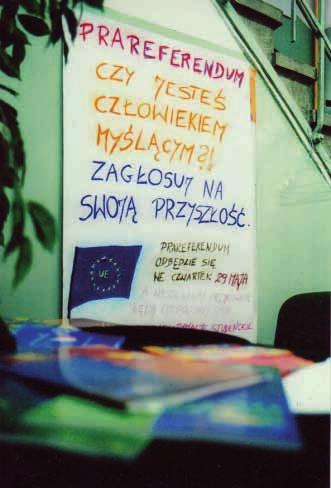 PRAREFERENDUM
CZY JESTEŚ
CZŁOWIEKIEM
MYŚLĄCYM?!
ZAGŁOSUJ NA
SWOJĄ PRZYSZŁOŚĆ.
UE
PRAREFERENDUM
ODBĘDZIE SIĘ
WE CZWARTEK 29 MAJA
A
STUDENCKIE